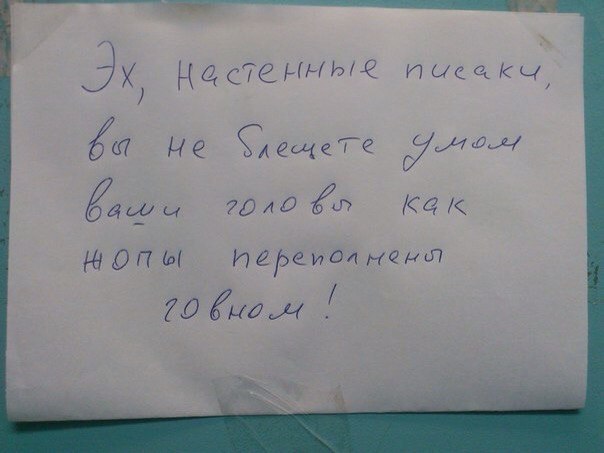 Эх, настенные писаки,
вы не блещете умом
ваши головы как
жопы переполнены
говном!